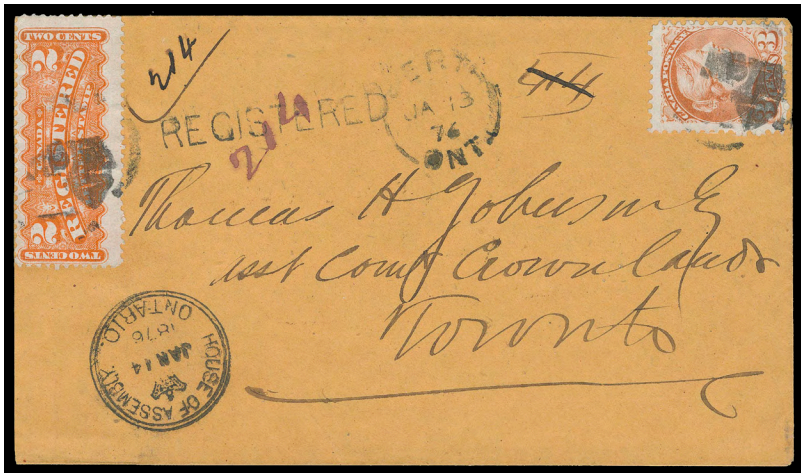 TWO CENTS
2 2
REGISTERED
CANADA
STAMP
2 2
TWO CENTS
214
REGISTERED
214
JA 13
76
ONT
44
3
CANADA POSTAGE
Thomas H Johnson Esq
Asst Comr Crown Lands
Toronto
HOUSE OF ASSEMBLY.
JAN 14
1876
ONTARIO.